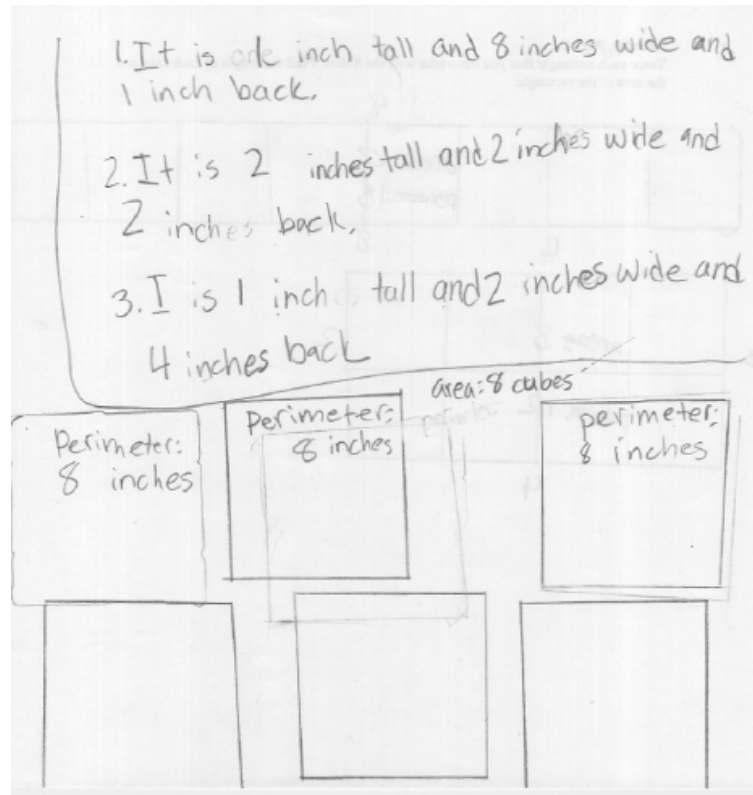 1. It is one inch tall and 8 inches wide and
1 inch back.
2. It is 2 inches tall and 2 inches wide and
2 inches back.
3. I is 1 inch tall and 2 inches wide and
4 inches back
area: 8 cubes
Perimeter:
8 inches
Perimeter:
8 inches
perimeter:
8 inches